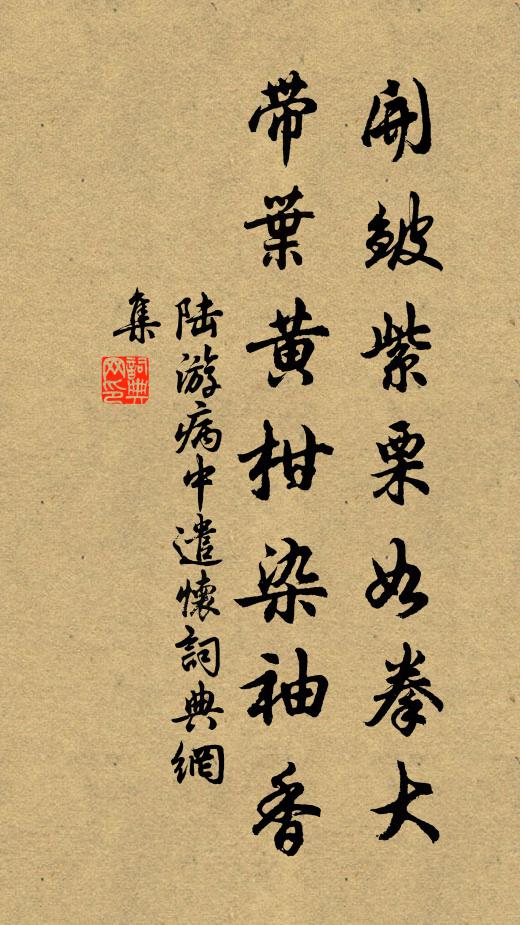 開皴紫栗如拳大
帶葉黃柑染袖香
陸游病中遣懷詞典網
集
詞典
网印